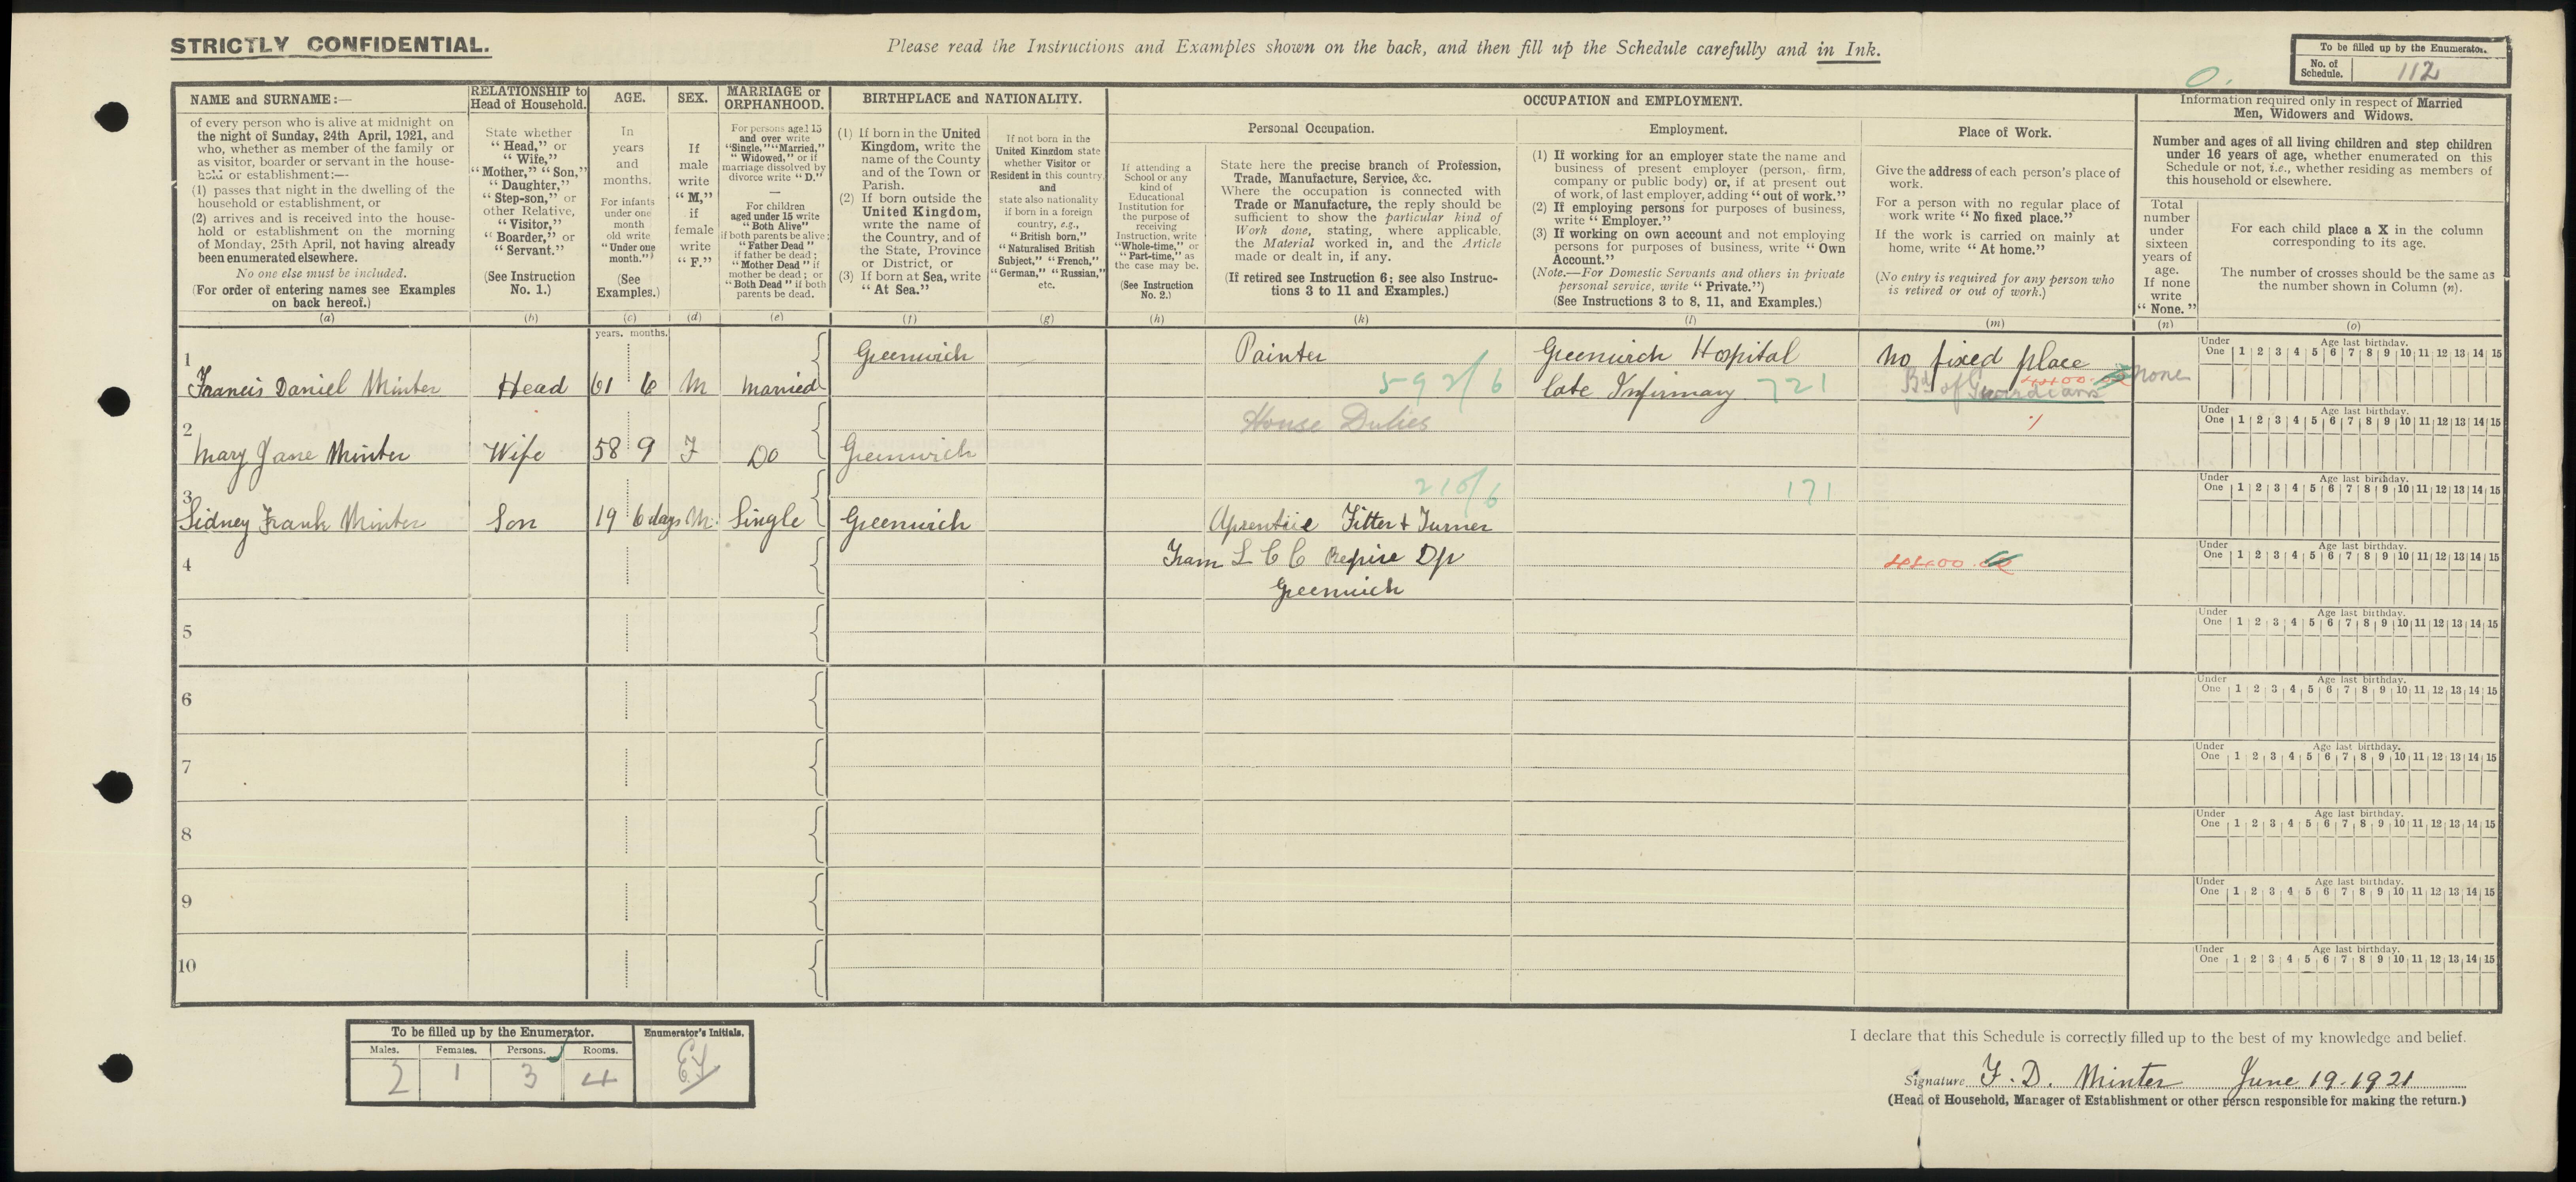 STRICTLY CONFIDENTIAL.
Please read the Instructions and Examples shown on the back, and then fill up the Schedule carefully and in Ink.
To be filled up by the Enumerator.
No. of Schedule. 112
NAME and SURNAME:—
of every person who is alive at midnight on
the night of Sunday, 24th April, 1921, and
who, whether as member of the family or
as visitor, boarder or servant in the house-
hold or establishment:—
(1) passes that night in the dwelling of the
household or establishment, or
(2) arrives and is received into the house-
hold or establishment on the morning
of Monday, 25th April, not having already
been enumerated elsewhere.
No one else must be included.
(For order of entering names see Examples
on back hereof.)
(a)
RELATIONSHIP to
Head of Household.
State whether
"Head," or
"Wife,"
"Mother," "Son,"
"Daughter,"
"Step-son," or
other Relative,
"Visitor,"
"Boarder," or
"Servant."
(See Instruction
No. 1.)
(b)
AGE.
In
years
and
months.
For infants
under one
month
old write
"Under one
month."
(See
Examples.)
(c)
SEX.
If
male
write
"M,"
if
female
write
"F."
(d)
MARRIAGE or
ORPHANHOOD.
For persons aged 15
and over write
"Single," "Married,"
"Widowed," or if
marriage dissolved by
divorce write "D."
—
For children
aged under 15 write
"Both Alive"
if both parents be alive;
"Father Dead"
if father be dead;
"Mother Dead" if
mother be dead; or
"Both Dead" if both
parents be dead.
(e)
BIRTHPLACE and NATIONALITY.
(1) If born in the United
Kingdom, write the
name of the County
and of the Town or
Parish.
(2) If born outside the
United Kingdom,
write the name of
the Country, and of
the State, Province
or District, or
(3) If born at Sea, write
"At Sea."
(f)
If not born in the
United Kingdom state
whether Visitor or
Resident in this country,
and
state also nationality
if born in a foreign
country, e.g.,
"British born,"
"Naturalised British
Subject," "French,"
"German," "Russian,"
etc.
(g)
OCCUPATION and EMPLOYMENT.
Personal Occupation.
If attending a
School or any
kind of
Educational
Institution for
the purpose of
receiving
Instruction, write
"Whole-time," or
"Part-time," as
the case may be.
(See Instruction
No. 2.)
(h)
State here the precise branch of Profession,
Trade, Manufacture, Service, &c.
Where the occupation is connected with
Trade or Manufacture, the reply should be
sufficient to show the particular kind of
Work done, stating, where applicable,
the Material worked in, and the Article
made or dealt in, if any.
(If retired see Instruction 6; see also Instruc-
tions 3 to 11 and Examples.)
(k)
Employment.
(1) If working for an employer state the name and
business of present employer (person, firm,
company or public body) or, if at present out
of work, of last employer, adding "out of work."
(2) If employing persons for purposes of business,
write "Employer."
(3) If working on own account and not employing
persons for purposes of business, write "Own
Account."
(Note.—For Domestic Servants and others in private
personal service, write "Private.")
(See Instructions 3 to 8, 11, and Examples.)
(l)
Place of Work.
Give the address of each person's place of
work.
For a person with no regular place of
work write "No fixed place."
If the work is carried on mainly at
home, write "At home."
(No entry is required for any person who
is retired or out of work.)
(m)
Information required only in respect of Married
Men, Widowers and Widows.
Number and ages of all living children and step children
under 16 years of age, whether enumerated on this
Schedule or not, i.e., whether residing as members of
this household or elsewhere.
Total
number
under
sixteen
years of
age.
If none
write
"None."
(n)
For each child place a X in the column
corresponding to its age.
The number of crosses should be the same as
the number shown in Column (n).
(o)
years. months.
1 Greenwich Painter Greenwich Hospital no fixed place
Francis Daniel Minter Head 61 6 M Married 592/6 late Infirmary 721 Bd of Guardians none
Under One Age last birthday. 1 2 3 4 5 6 7 8 9 10 11 12 13 14 15
2 House Duties
Mary Jane Minter Wife 58 9 F Do Greenwich
Under One Age last birthday. 1 2 3 4 5 6 7 8 9 10 11 12 13 14 15
3 210/6 171
Sidney Frank Minter Son 19 6 days M. Single Greenwich Aprentice Fitter + Turner
Under One Age last birthday. 1 2 3 4 5 6 7 8 9 10 11 12 13 14 15
4 Tram L C C Repire Dp
Greenwich
Under One Age last birthday. 1 2 3 4 5 6 7 8 9 10 11 12 13 14 15
5
Under One Age last birthday. 1 2 3 4 5 6 7 8 9 10 11 12 13 14 15
6
Under One Age last birthday. 1 2 3 4 5 6 7 8 9 10 11 12 13 14 15
7
Under One Age last birthday. 1 2 3 4 5 6 7 8 9 10 11 12 13 14 15
8
Under One Age last birthday. 1 2 3 4 5 6 7 8 9 10 11 12 13 14 15
9
Under One Age last birthday. 1 2 3 4 5 6 7 8 9 10 11 12 13 14 15
10
Under One Age last birthday. 1 2 3 4 5 6 7 8 9 10 11 12 13 14 15
To be filled up by the Enumerator. Enumerator's Initials.
Males. Females. Persons. Rooms.
2 1 3 4
I declare that this Schedule is correctly filled up to the best of my knowledge and belief.
Signature F. D. Minter June 19. 1921
(Head of Household, Manager of Establishment or other person responsible for making the return.)